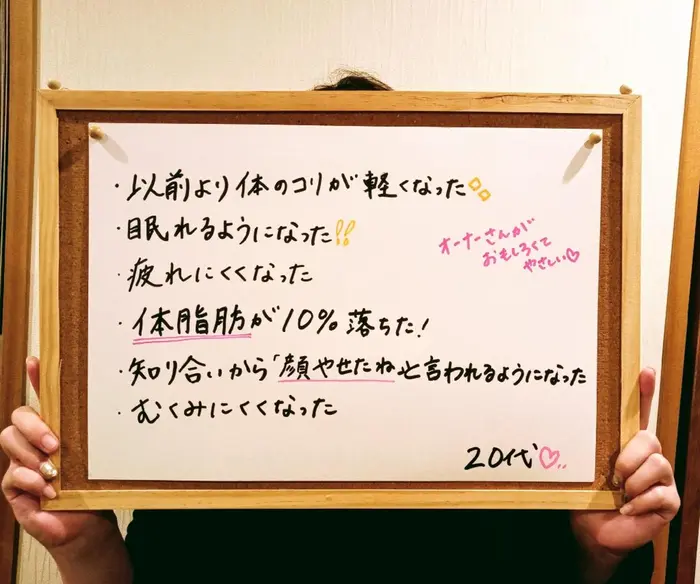 ・以前より体のコリが軽くなった
・眠れるようになった!!
オーナーさんが
おもしろくて
やさしい♡
・疲れにくくなった
・体脂肪が10%落ちた!
・知り合いから「顔やせたね」と言われるようになった
・むくみにくくなった
20代♡